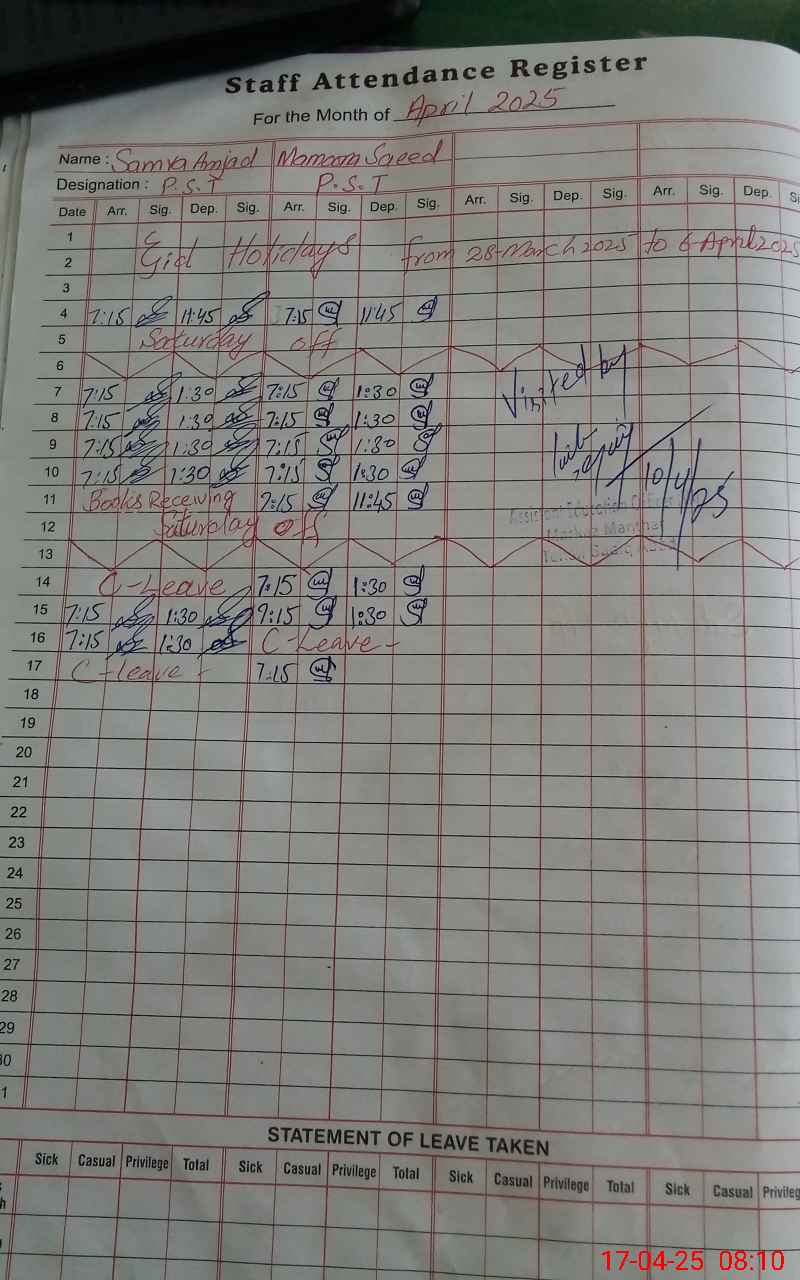 Staff Attendance Register
For the Month of April 2025
Name : Samra Amjad Mamoona Saeed
Designation : P.S.T P.S.T
Date Arr. Sig. Dep. Sig. Arr. Sig. Dep. Sig. Arr. Sig. Dep. Sig. Arr. Sig. Dep.
1
2 Eid Holidays from 28-March 2025 to 6-April 2025
3
4 7:15 11:45 7:15 11:45
5 Saturday off
6
7 7:15 1:30 7:15 1:30
Visited by
8 7:15 1:30 7:15 1:30
9 7:15 1:30 7:15 1:30
10 7:15 1:30 7:15 1:30
10/4/25
11 Books Receiving 7:15 11:45
Assistant Education Officer
12 Saturday off
Markaz Manthar
13
14 C-Leave 7:15 1:30
15 7:15 1:30 7:15 1:30
16 7:15 1:30 C-Leave -
17 C-leave - 7:15
18
19
20
21
22
23
24
25
26
27
28
29
30
1
STATEMENT OF LEAVE TAKEN
Sick Casual Privilege Total Sick Casual Privilege Total Sick Casual Privilege Total Sick Casual Privileg
17-04-25 08:10